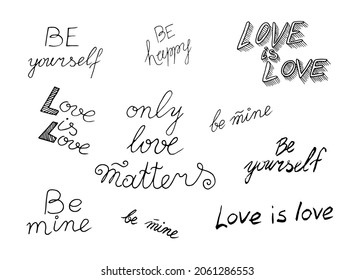 BE
yourself
BE
happy
LOVE
is
LOVE
Love
is
Love
only
love
matters
be mine
Be
yourself
Be
mine
be mine
Love is love
shutterstock.com · 2061286553